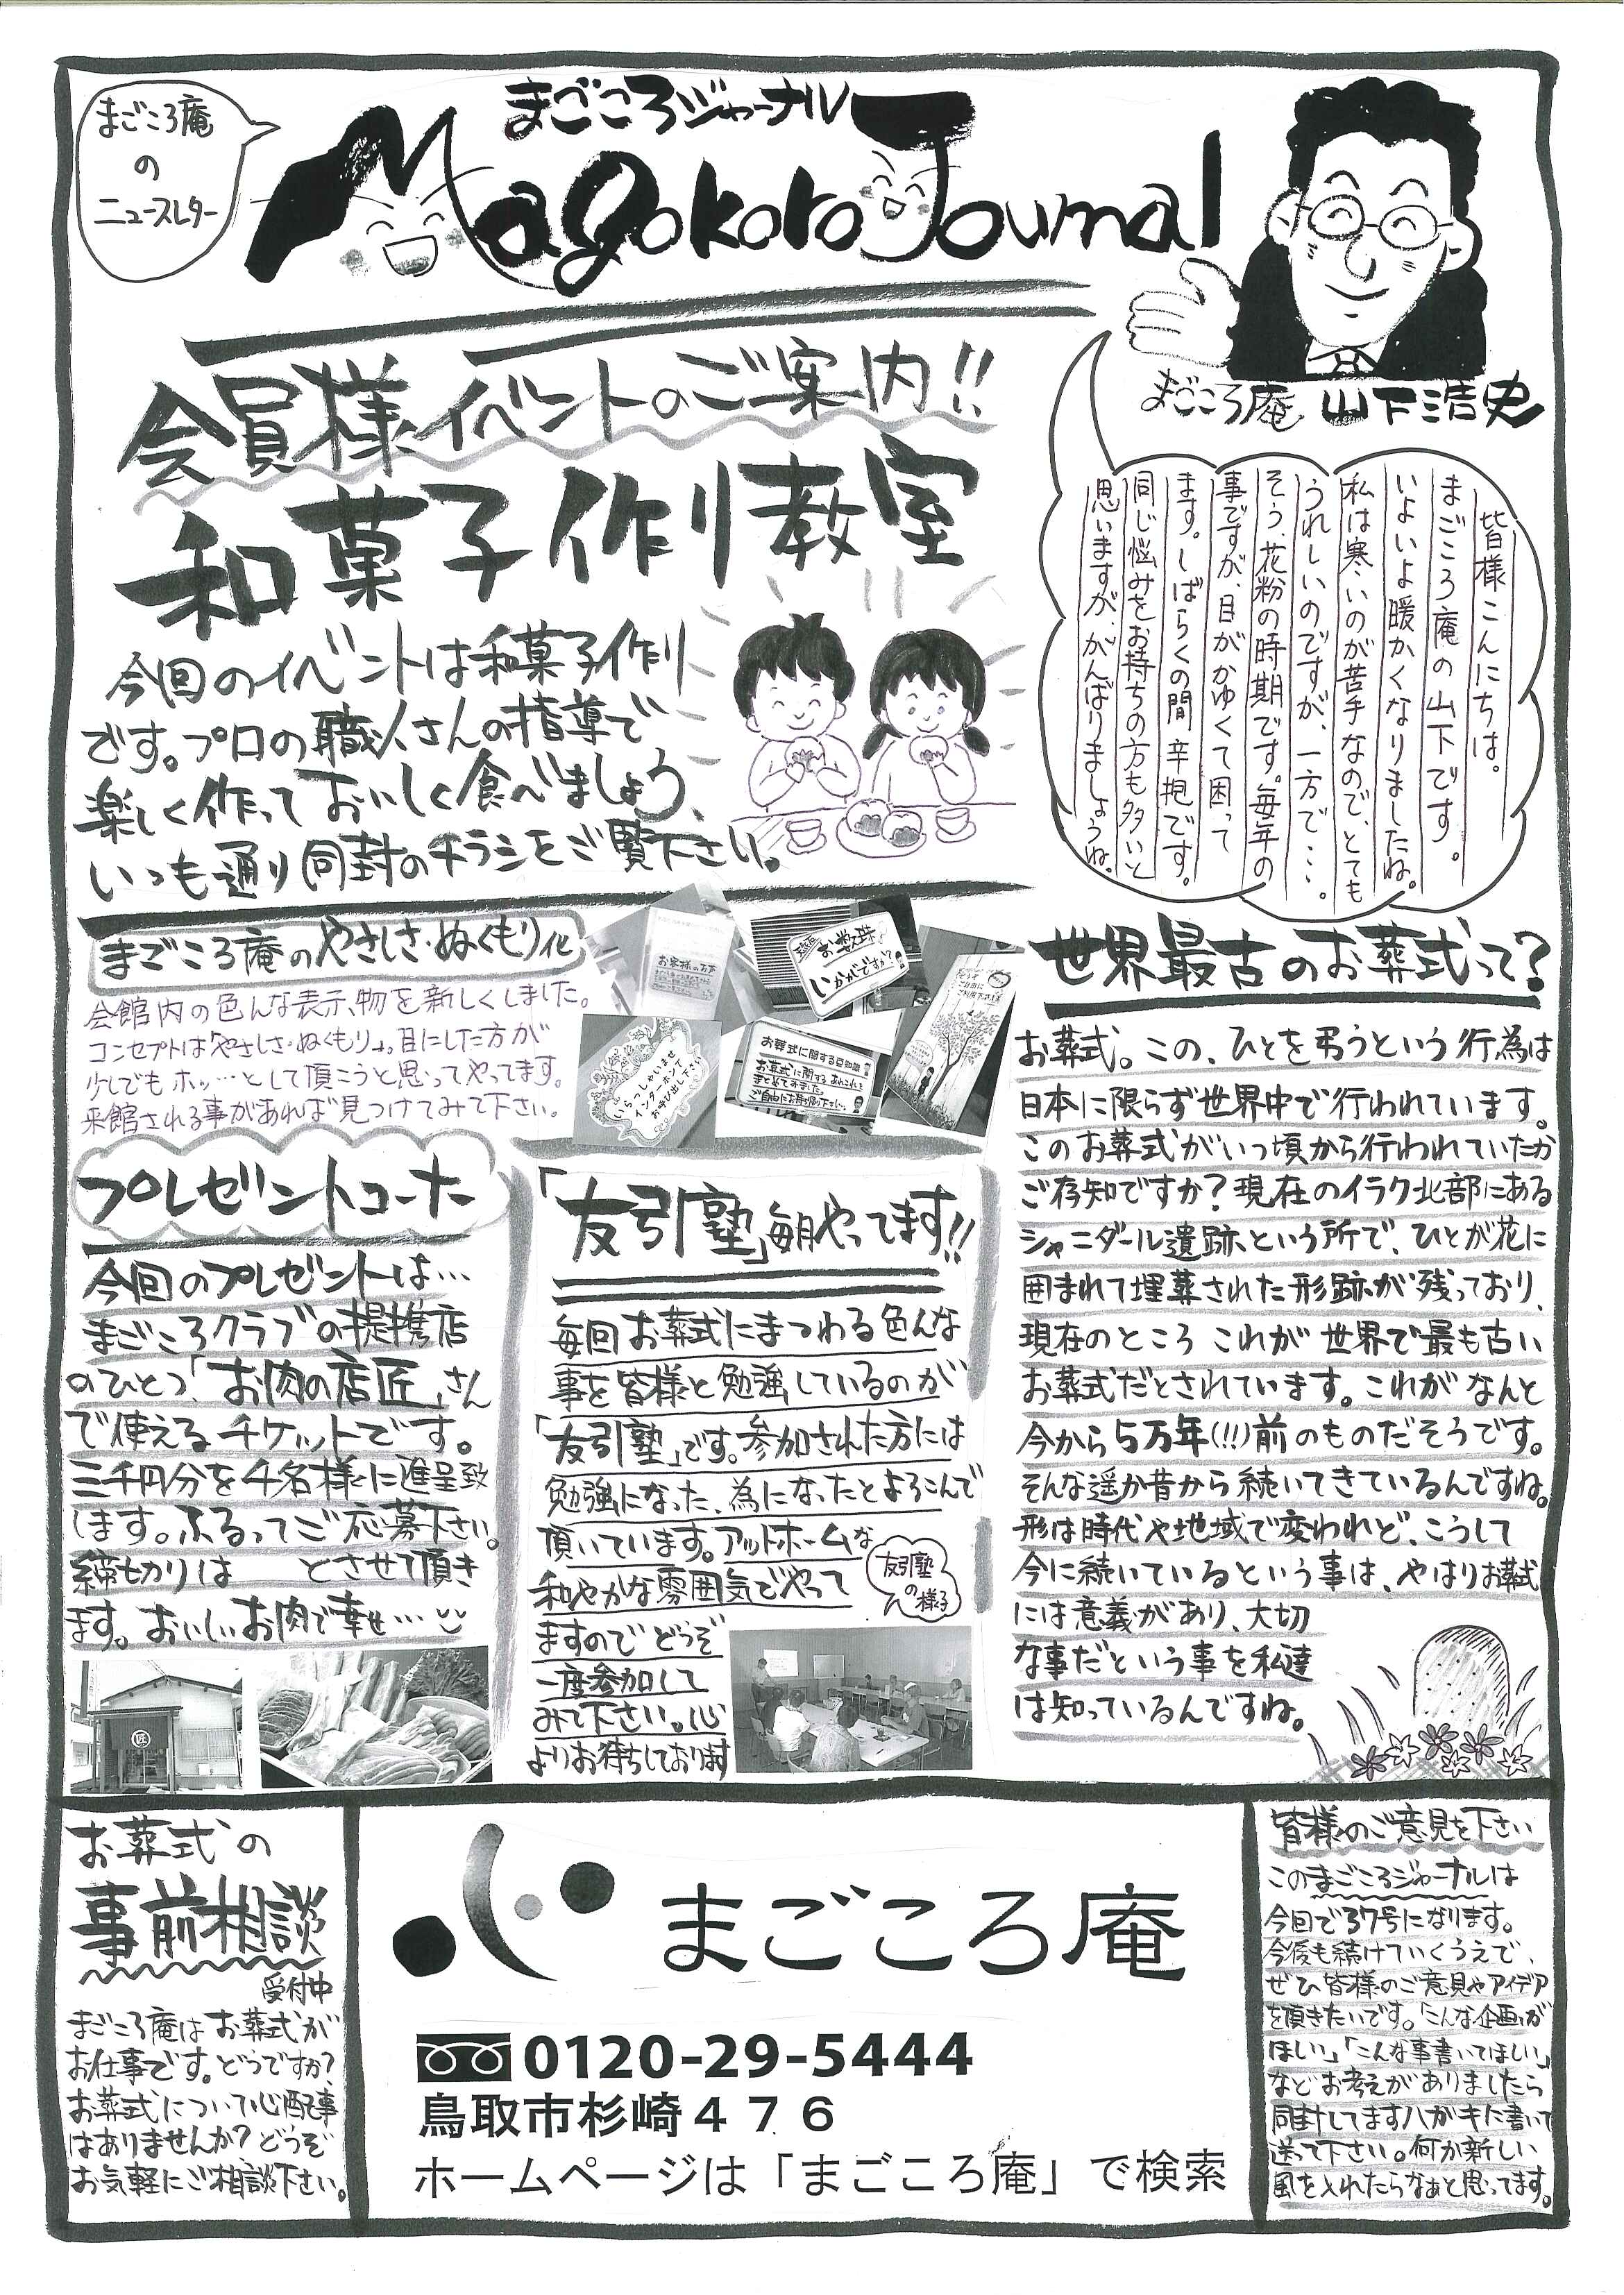 まごころ庵
の
ニュースレター
まごころジャーナル
Magokoro Journal
まごころ庵 山下浩史
皆様こんにちは。
まごころ庵の山下です。
いよいよ暖かくなりましたね。
私は寒いのが苦手なので、とても
うれしいのですが、一方で…。
そう、花粉の時期です。毎年の
事ですが、目がかゆくて困って
ます。しばらくの間辛抱です。
同じ悩みをお持ちの方も多いと
思いますが、がんばりましょうね。
会員様イベントのご案内!!
和菓子作り教室
今回のイベントは和菓子作り
です。プロの職人さんの指導で
楽しく作っておいしく食べましょう、
いつも通り同封のチラシをご覧下さい。
まごころ庵のやさしさ・ぬくもり化
会館内の色んな表示物を新しくしました。
コンセプトは「やさしさ・ぬくもり」。目にした方が
少しでもホッ…として頂こうと思ってやってます。
来館される事があれば見つけてみて下さい。
お客様のお下
お数珠
いかがですか?
いらっしゃいませ
インターホンで
お呼び出し下さい
お葬式に関する豆知識
お葬式に関するあれこれを
まとめてみました。
ご自由にお持ち帰り下さい。
世界最古のお葬式って?
お葬式。この、ひとを弔うという行為は
日本に限らず世界中で行われています。
このお葬式がいつ頃から行われていたか
ご存知ですか?現在のイラク北部にある
シャニダール遺跡という所で、ひとが花に
囲まれて埋葬された形跡が残っており、
現在のところこれが世界で最も古い
お葬式だとされています。これがなんと
今から5万年(!!!)前のものだそうです。
そんな遥か昔から続いてきているんですね。
形は時代や地域で変われど、こうして
今に続いているという事は、やはりお葬式
には意義があり、大切
な事だという事を私達
は知っているんですね。
プレゼントコーナー
今回のプレゼントは…
まごころクラブの提携店
のひとつ、「お肉の店匠」さん
で使えるチケットです。
三千円分を4名様に進呈致
します。ふるってご応募下さい。
締切りは とさせて頂き
ます。おいしいお肉で幸せ…
匠
「友引塾」毎月やってます!!
毎回お葬式にまつわる色んな
事を皆様と勉強しているのが
「友引塾」です。参加された方には
勉強になった、為になったとよろこんで
頂いています。アットホームな
和やかな雰囲気でやって
ますのでどうぞ
一度参加して
みて下さい。心
よりお待ちしております
友引塾
の
様子
お葬式の
事前相談
受付中
まごころ庵はお葬式が
お仕事です。どうですか?
お葬式について心配事
はありませんか?どうぞ
お気軽にご相談下さい。
まごころ庵
0120-29-5444
鳥取市杉崎476
ホームページは「まごころ庵」で検索
皆様のご意見を下さい
このまごころジャーナルは
今回で37号になります。
今後も続けていくうえで、
ぜひ皆様のご意見やアイデア
を頂きたいです。「こんな企画が
ほしい」「こんな事書いてほしい」
などお考えがありましたら
同封してますハガキに書いて
送って下さい。何か新しい
風を入れたらなぁと思ってます。